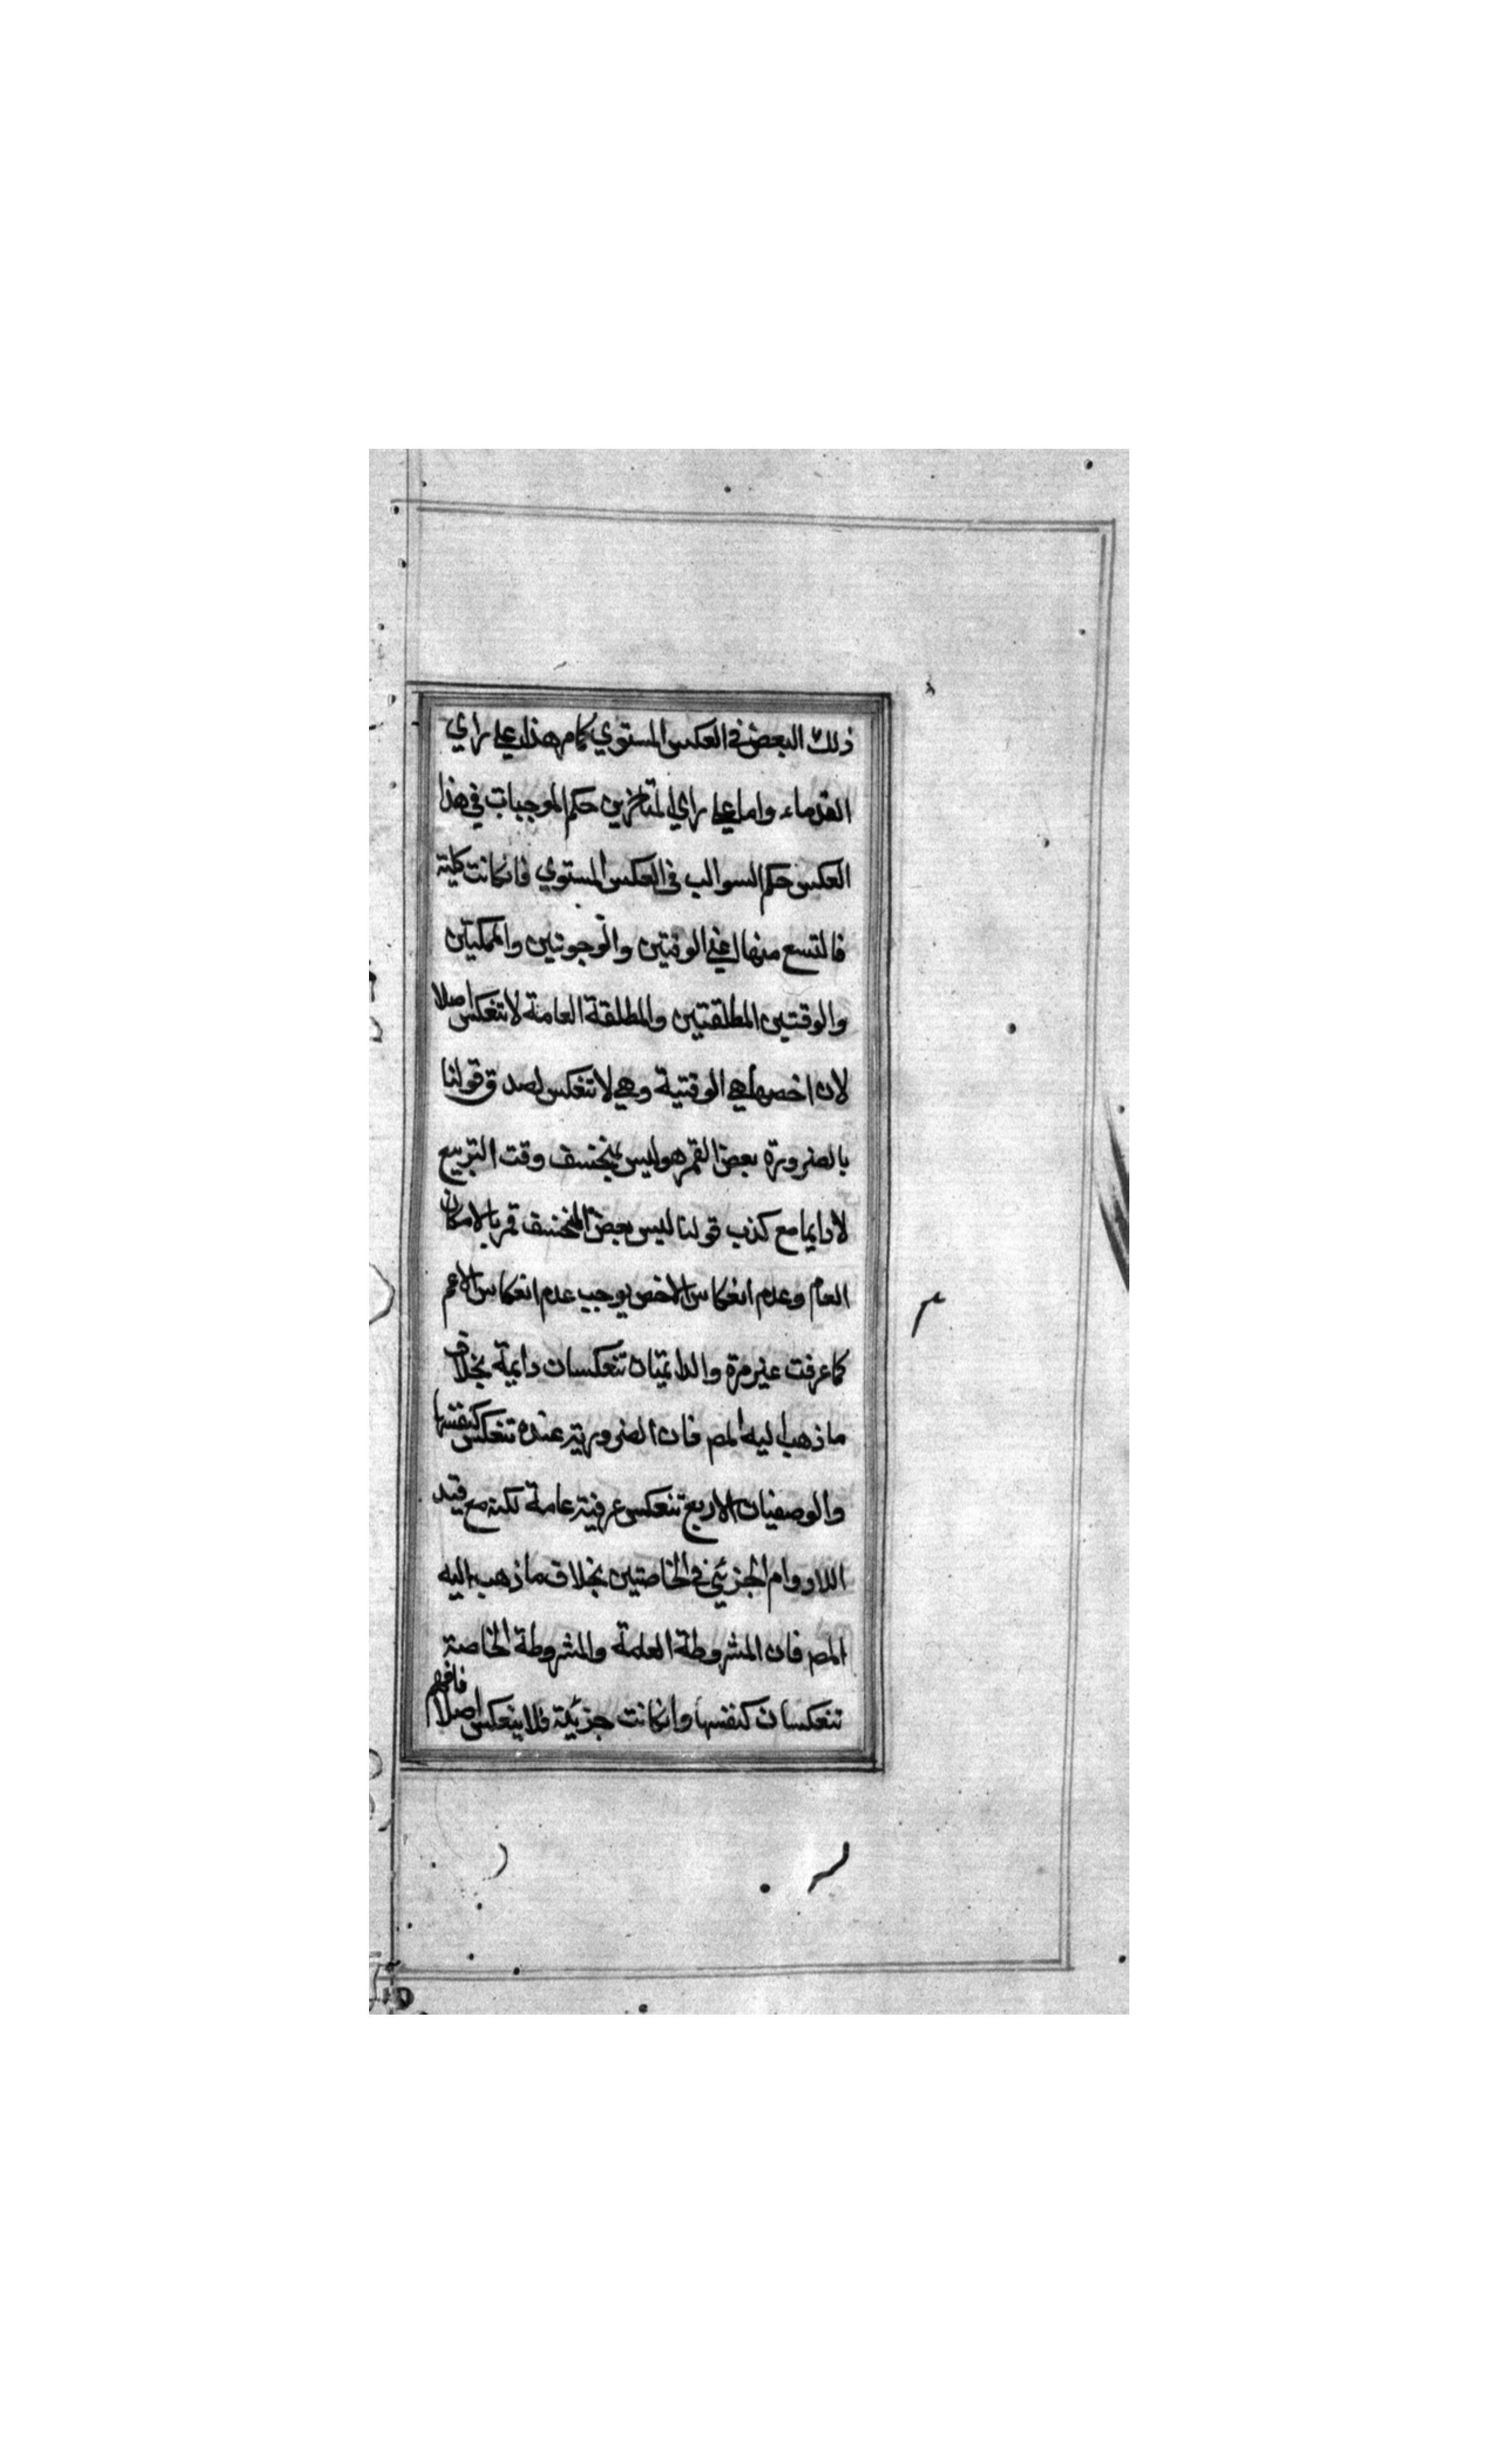 ذلك البعض في العكس المستوي كما مر هذا على راي
القدماء واما على راي المتاخرين حكم الموجبات في هذا
العكس حكم السوالب في العكس المستوي فانكانت كلية
فالتسع منها اعني الوقتيتين والوجوديتين والممكنتين
والوقتيتين المطلقتين والمطلقة العامة لا تنعكس اصلا
لان اخصها هي الوقتية وهي لا تنعكس لصدق قولنا
بالضرورة بعض القمر هو ليس بمنخسف وقت التربيع
لا دايما مع كذب قولنا ليس بعض المنخسف قمر بالامكان
العام وعدم انعكاس الاخص يوجب عدم انعكاس الاعم
كما عرفت غير مرة والدايمتان تنعكسان دايمة بخلاف
ما ذهب اليه المص فان الضرورية عنده تنعكس كنفسها
والوصفيات الاربع تنعكس عرفية عامة لكنه مع قيد
اللادوام الجزئي في الخاصتين بخلاف ما ذهب اليه
المص فان المشروطة العامة والمشروطة الخاصة
تنعكسان كنفسها وانكانت جزئية فلا ينعكس اصلا فافهم